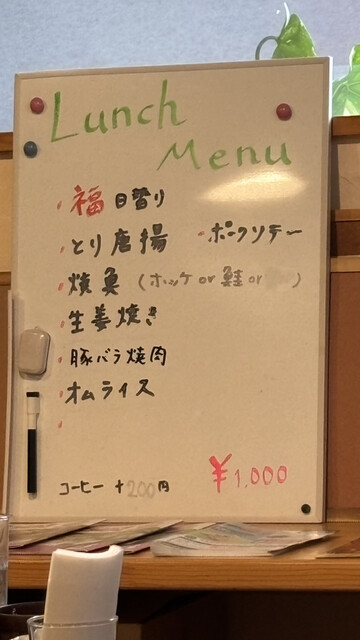 Lunch
Menu
・福 日替り
・とり唐揚 ・ポークソテー
・焼魚 (ホッケ or 鮭 or )
・生姜焼き
・豚バラ焼肉
・オムライス
・
コーヒー +200円
¥1,000